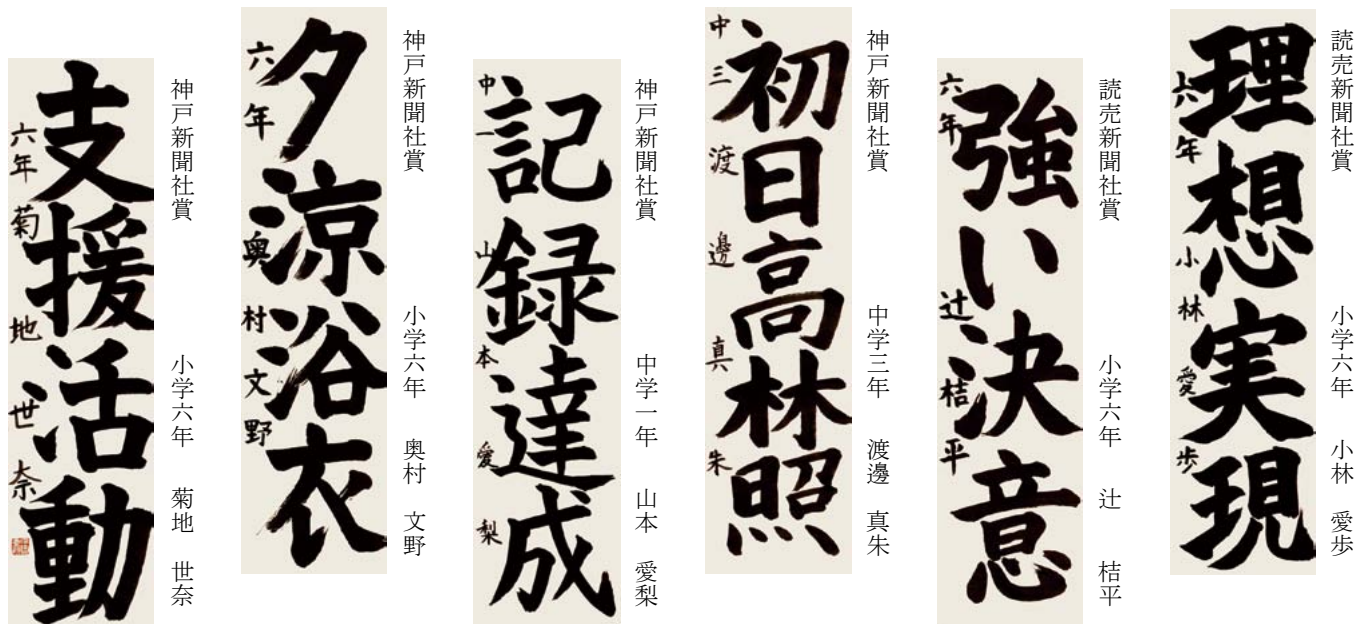 読売新聞社賞 小学六年 小林 愛歩
理想実現
六年 小林愛歩
読売新聞社賞 小学六年 辻 桔平
強い決意
六年 辻桔平
神戸新聞社賞 中学三年 渡邊 真朱
初日高林照
中三 渡邊真朱
神戸新聞社賞 中学一年 山本 愛梨
記録達成
中一 山本愛梨
神戸新聞社賞 小学六年 奥村 文野
夕涼浴衣
六年 奥村文野
神戸新聞社賞 小学六年 菊地 世奈
支援活動
六年 菊地世奈